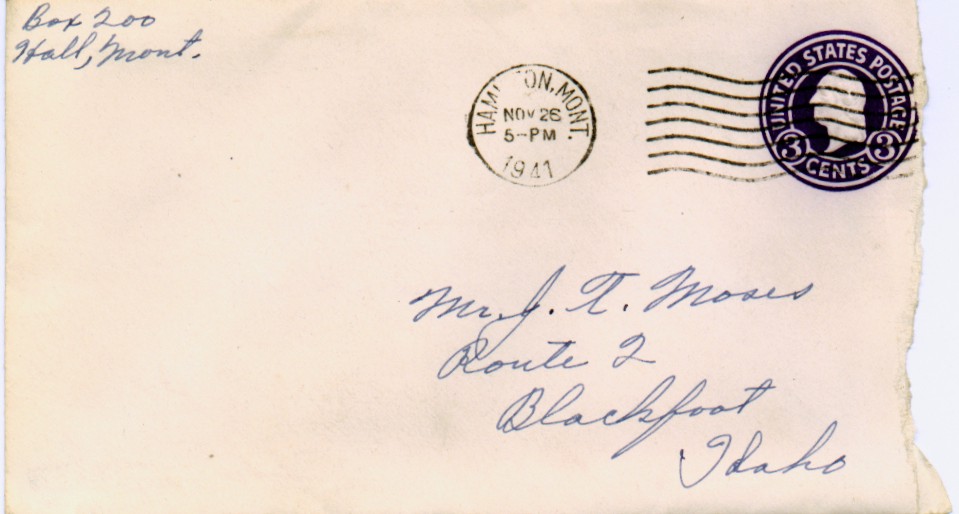 Box 200
Hall, Mont.
HAMI ON, MONT.
NOV 26
5-PM
1941
UNITED STATES POSTAGE
3 CENTS 3
Mr. J. T. Moses
Route 2
Blackfoot
Idaho